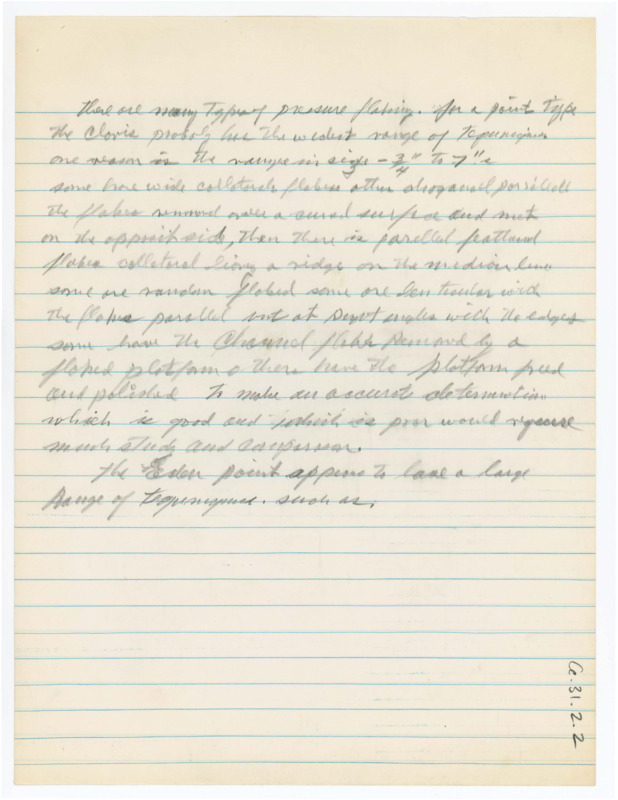 there are many types of pressure flaking. for a point type
the Clovis probaly has the widest range of tequeniques
one reason is the range in size - 3/4" to 7"
some have wide collateral flakes other diagonal parallell
the flakes removed over a cured surface and met
on the opposit side, then there is parellel
flakes collateral a ridge on the median line
some are random flaked some are lenticular with
the flakes parallel but at angles with the edges
some have the Channel flake removed by a
flaked platform others have the platform freed
and polished to make an accurat determination
which is good and which is poor would requere
much study and comparison.
the Eden point appears to have a large
Range of tequeniques. such as,
Ce.31.2.2